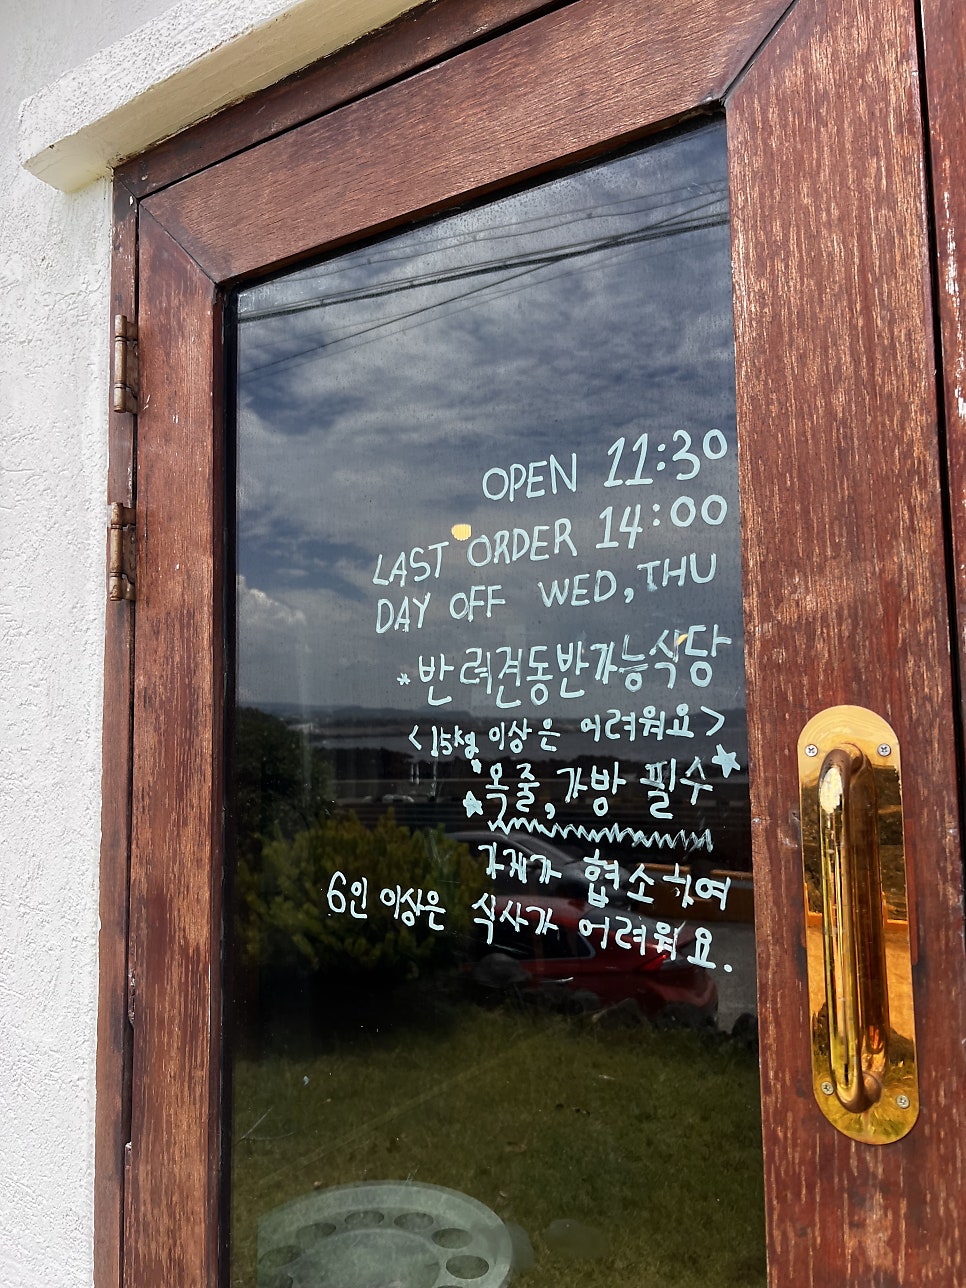 OPEN 11:30
LAST ORDER 14:00
DAY OFF WED, THU
*반려견동반가능식당
<15kg 이상은 어려워요>
★목줄, 가방 필수★
가게가 협소하여
6인 이상은 식사가 어려워요.